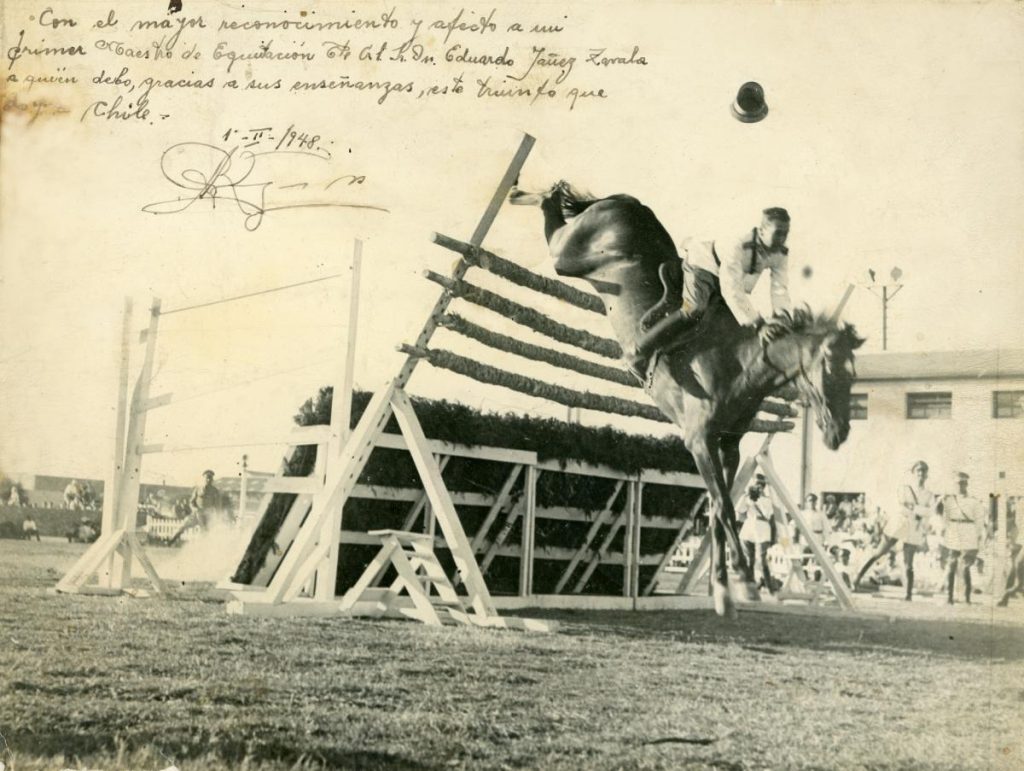 Con el mayor reconocimiento y afecto a mi
primer Maestro de Equitación Eduardo Yáñez Zavala
a quién debo, gracias a sus enseñanzas, este triunfo que
Chile.-
1-II-/948.